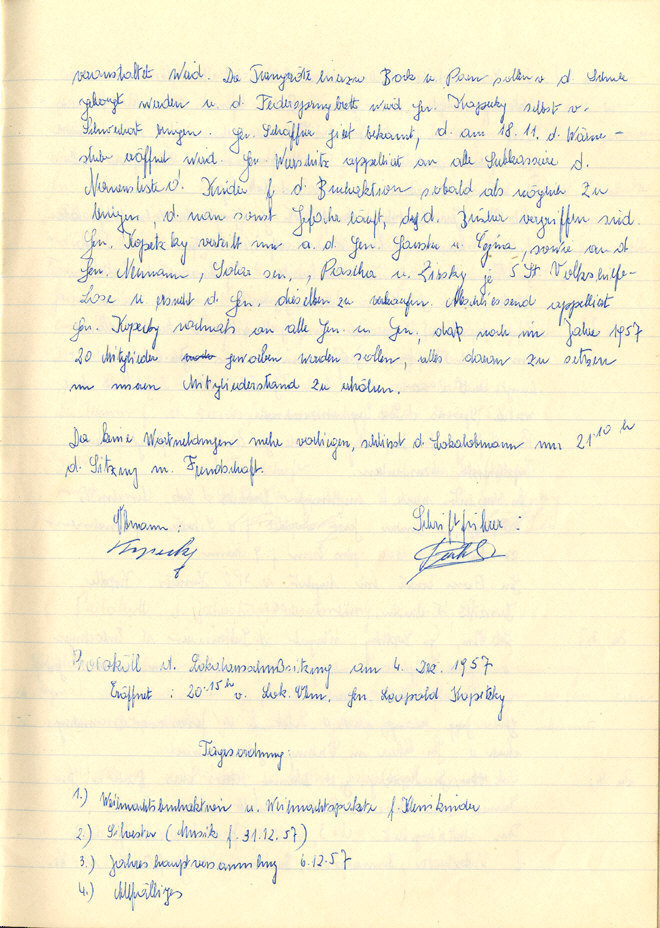 veranstaltet wird. Die Turngeräte hiezu Bock u Pferd sollen v. d. Schule
gekauft werden u. d. Federsprungbrett wird Gen. Kopecky selbst v.
Schwechat bringen. Gen. Schäffner gibt bekannt, d. am 18.11. d. Wärme-
stube eröffnet wird. Gen appelliert an alle Subkassiere d.
Namensliste d. Kinder f. d. Buchaktion sobald als möglich zu
bringen, d. man sonst Gefahr läuft, daß d. Bücher vergriffen sind.
Gen. Kopetzky verteilt nun a. d. Gen. u. , sowie an d.
Gen. Neumann, sen., Prascha u. Zibsky je 5 St Volkshilfe-
Lose u ersucht d. Gen. dieselben zu verkaufen. Abschliessend appelliert
Gen. Kopecky nochmals an alle Gen. u. Gen, daß noch im Jahre 1957
20 Mitglieder geworben werden sollen, alles daran zu setzen
um unseren Mitgliederstand zu erhöhen.
Da keine Wortmeldungen mehr vorliegen, schliesst d. Lokalobmann um 21.10 h
d. Sitzung m. Freundschaft.
Obmann: Schriftführer:
Kopecky
Protokoll d. Lokalausschußsitzung am 4. Dez. 1957
Eröffnet: 20.15 h v. Lok. Obm. Gen Leopold Kopetzky
Tagesordnung:
1.) Weihnachtsbuchaktion u. Weihnachtspakete f. Kleinkinder
2.) Silvester (Musik f. 31.12.57)
3.) Jahreshauptversammlung 6.12.57
4.) Allfälliges